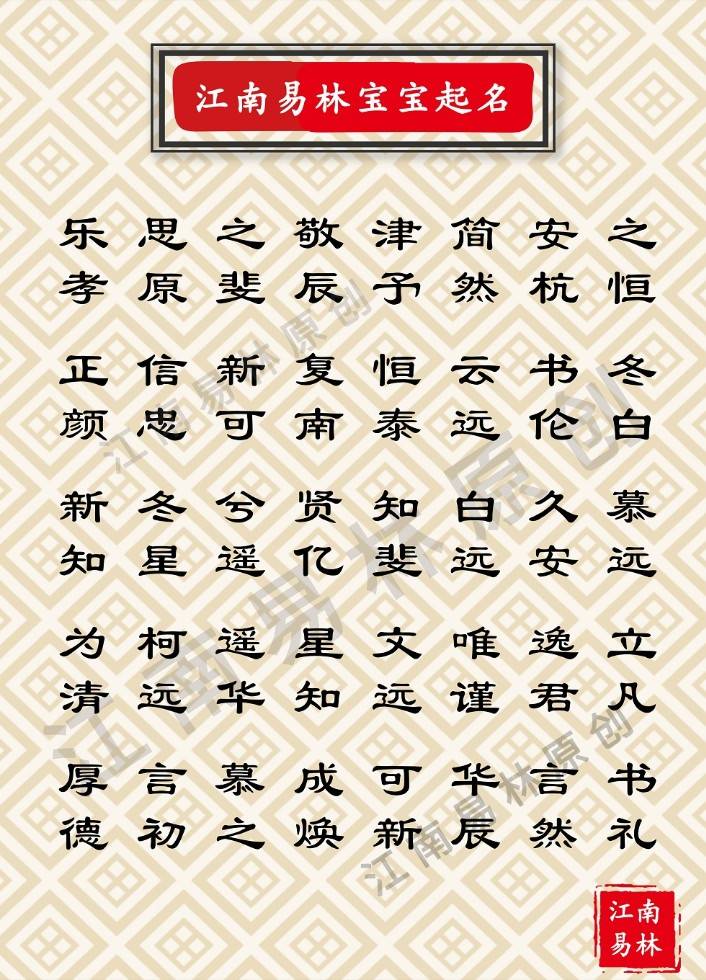 江南易林宝宝起名
乐 思 之 敬 津 简 安 之
孝 原 斐 辰 予 然 杭 恒
正 信 新 复 恒 云 书 冬
颜 忠 可 南 泰 远 伦 白
新 冬 兮 贤 知 白 久 慕
知 星 遥 亿 斐 远 安 远
为 柯 遥 星 文 唯 逸 立
清 远 华 知 远 谨 君 凡
厚 言 慕 成 可 华 言 书
德 初 之 焕 新 辰 然 礼
江南易林原创
江南易林原创
江南易林原创
江南
易林